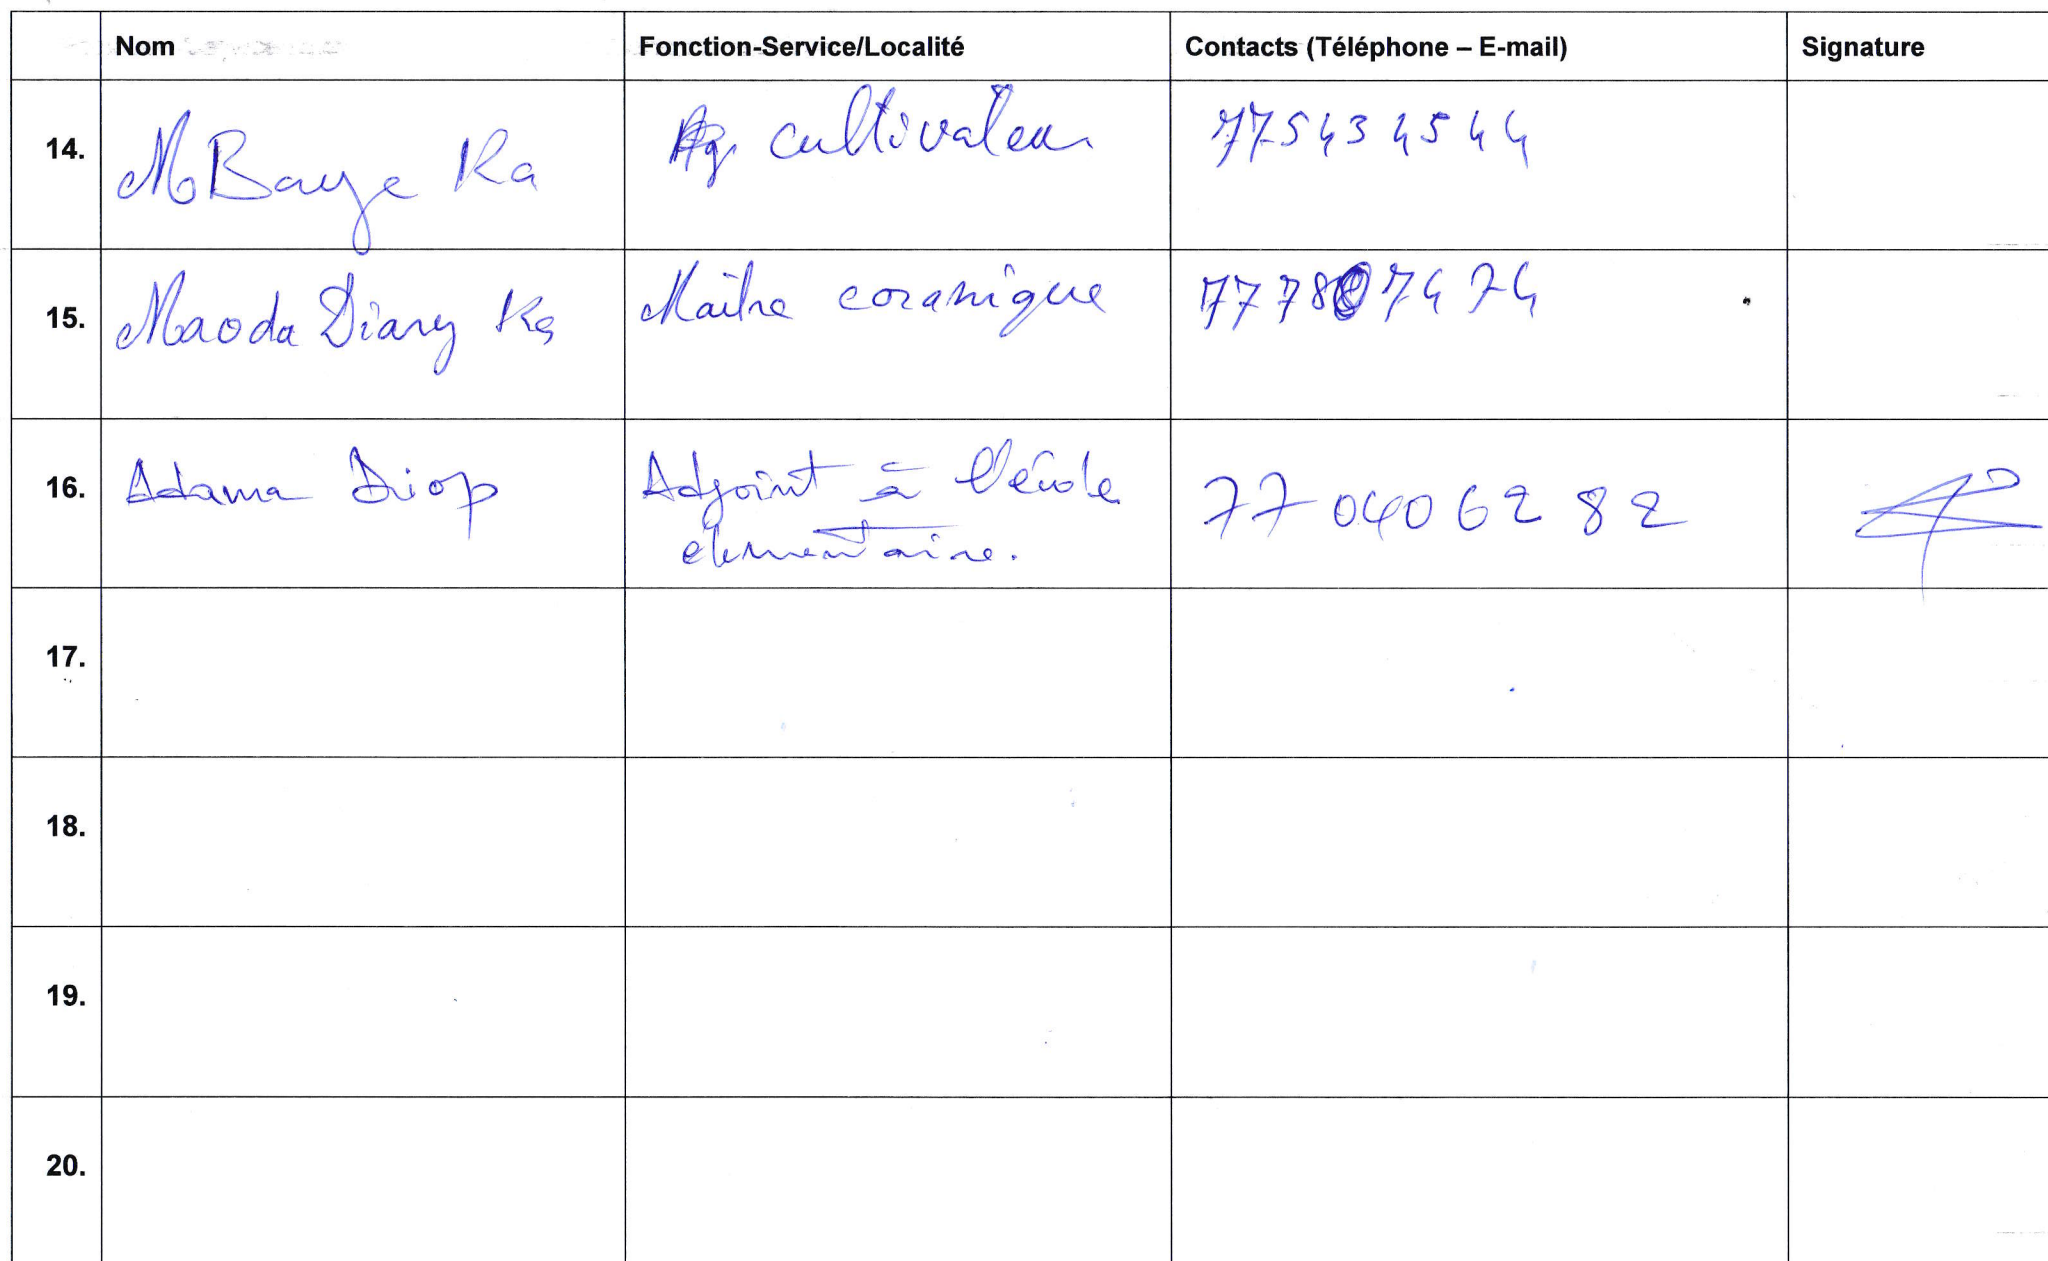 Nom Fonction-Service/Localité Contacts (Téléphone – E-mail) Signature
14. MBaye Ka cultivateur 775434544
15. Maoda Diany Ka Maître coranique 777807474
16. Adama Diop Adjoint à l'école 77 040 62 82
élémentaire.
17.
18.
19.
20.